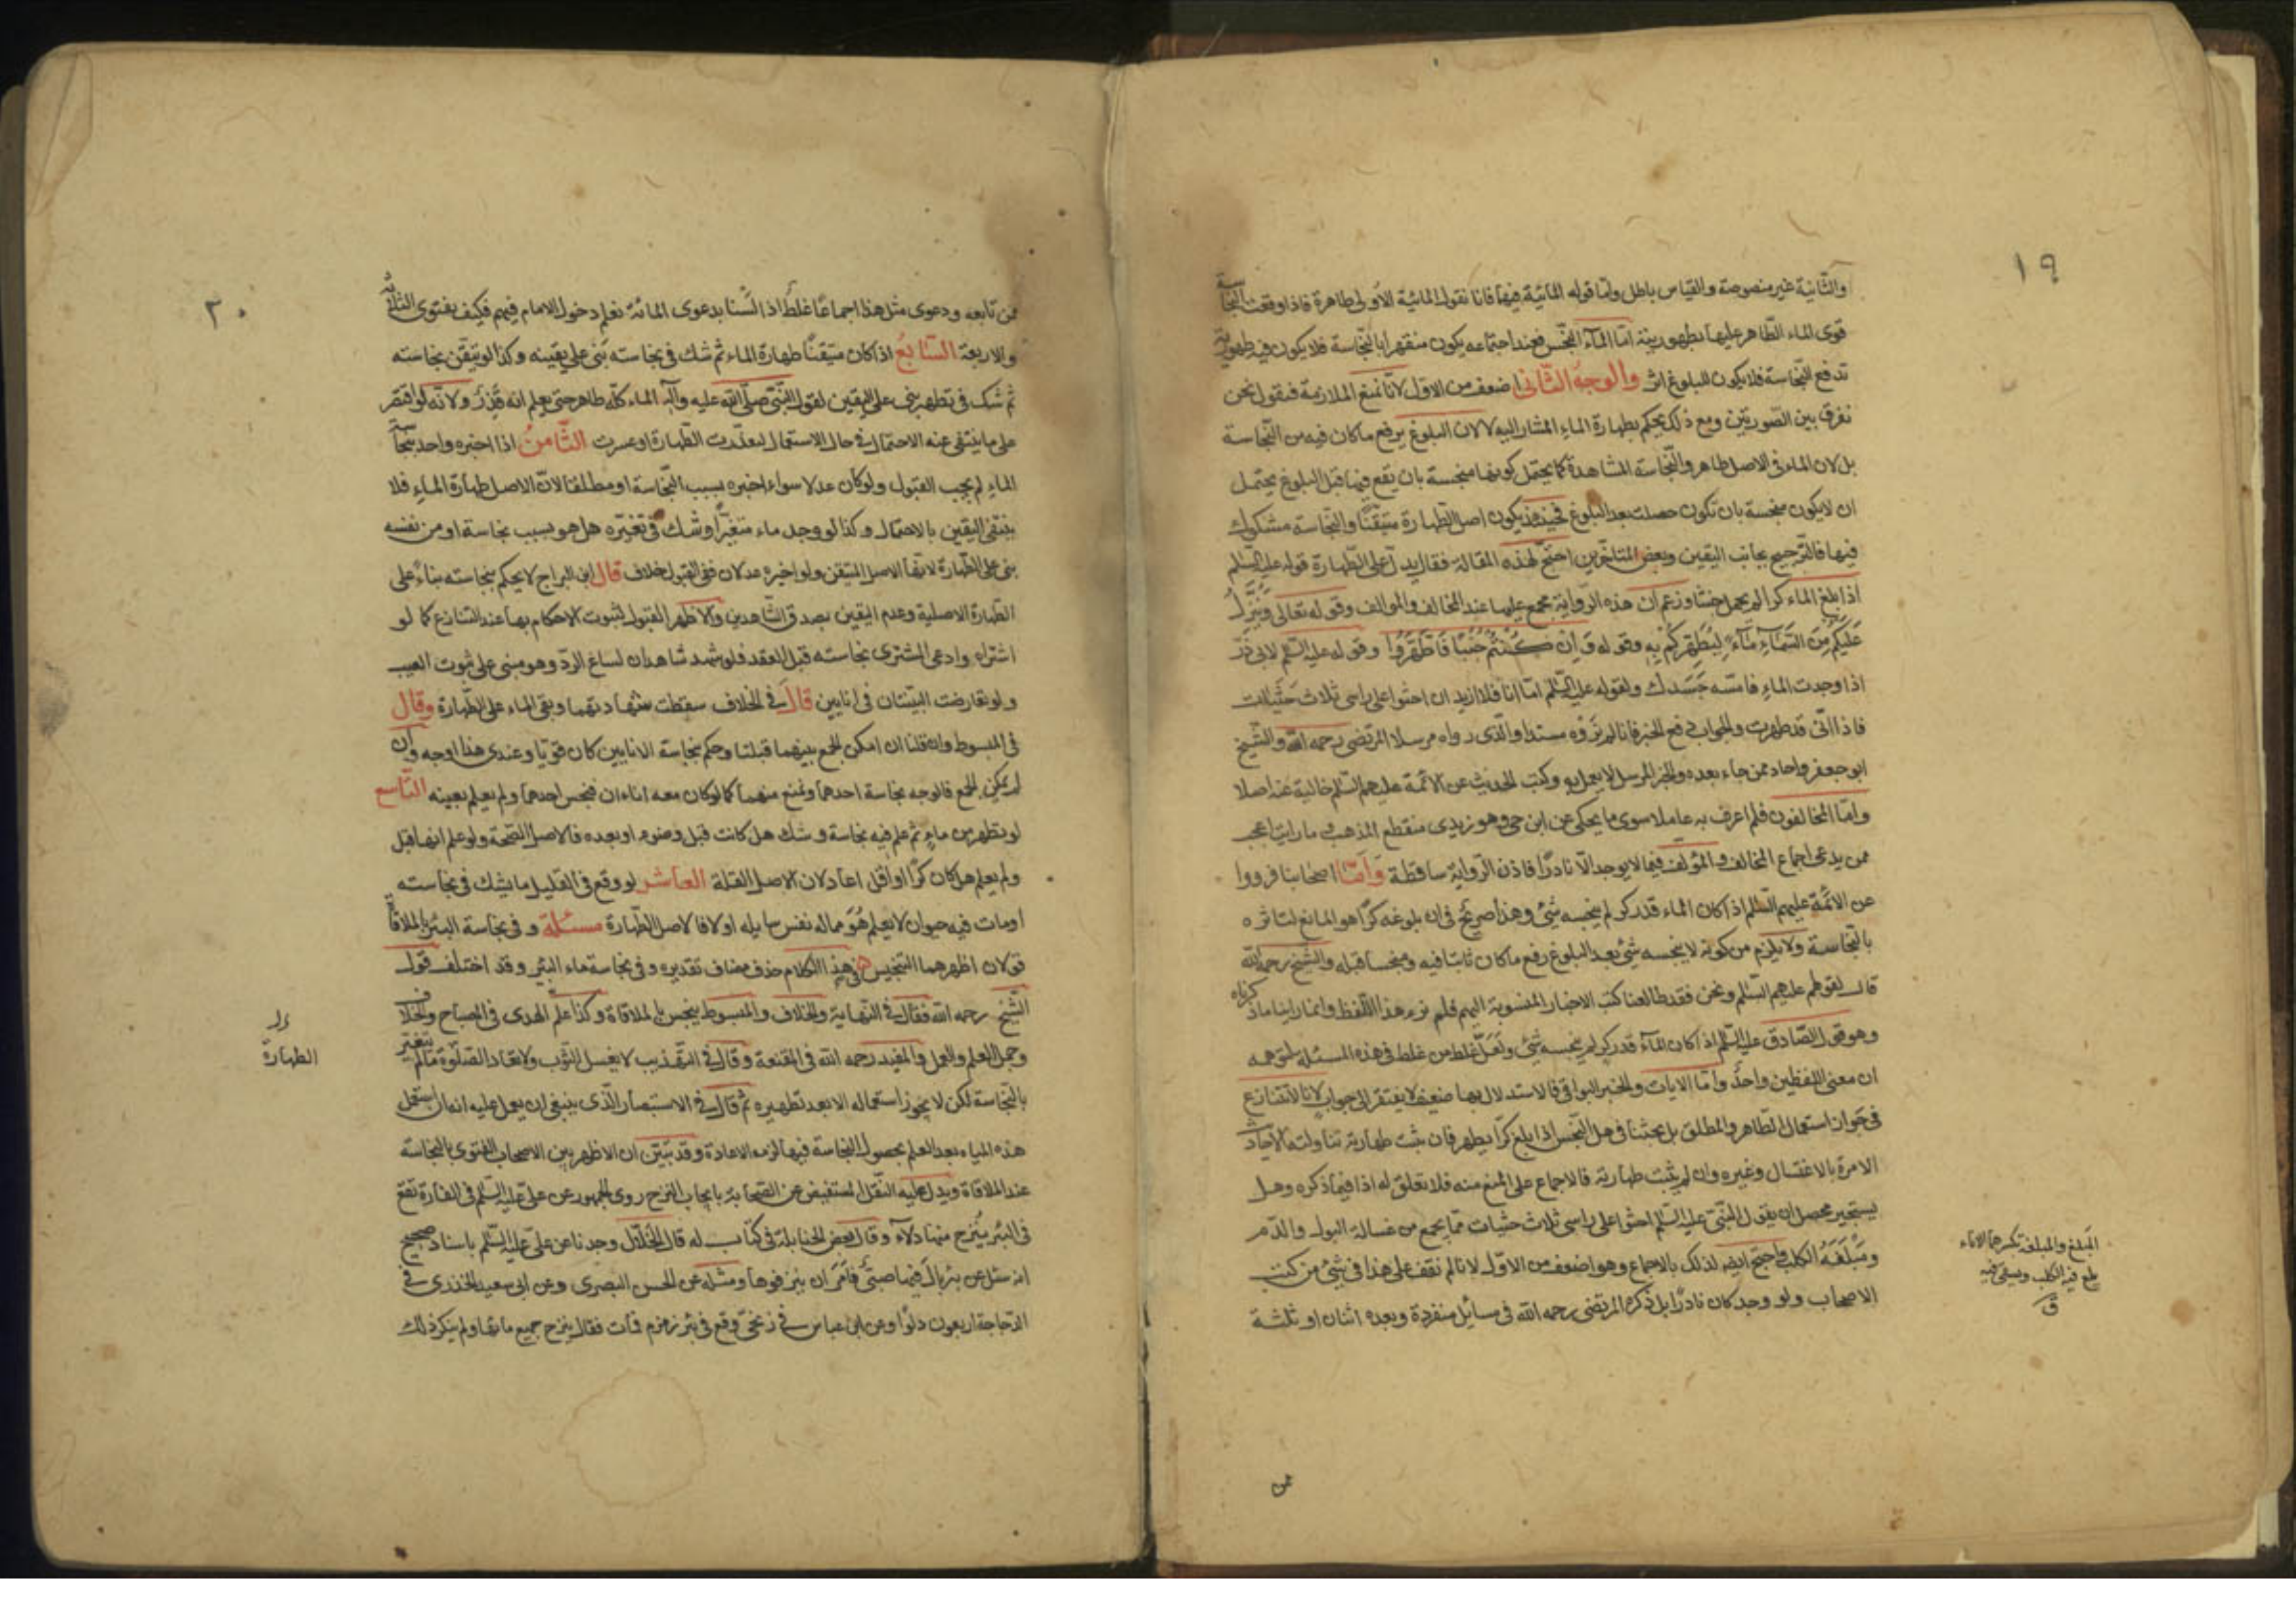 ١٩
والثانية غير منصوصة والقياس باطل وامّا قوله المائية فيها فانا نقول المائية الأولى طاهرة فاذا وقعت بالنجاسة
قوى الماء الطاهر عليها بطهوريته امّا المآء النجس فعند اجتماعه يكون منقهرا بالنجاسة فلا يكون فيه طهورية
تدفع النجاسة فلا يكون للبلوغ اثر والوجه الثانى اضعف من الاول لانا نمنع الملازمة فنقول نحن
نفرق بين الصورتين ومع ذلك يحكم بطهارة الماء المشار اليه لا لان البلوغ يرفع ما كان فيه من النجاسة
بل لان الماء فى الاصل طاهر والنجاسة المشاهدة كما يحتمل كونها منجسة بان يقع فيها قبل البلوغ يحتمل
ان لا يكون منجسة بان تكون حصلت بعد البلوغ فحينئذ يكون اصل الطهارة متيقنًا والنجاسة مشكوك
فيها فالترجيح بجانب اليقين وبعض المتاخرين احتج لهذه المقالة فقال يدل على الطهارة قوله عليه السلم
اذا بلغ الماء كرا لم يحمل خبثا وزعم ان هذه الرواية مجمع عليها عند المخالف والموالف وقوله تعالى وَيُنَزِّلُ
عَلَيْكُم مِنَ السَّمَاءِ مَاءً لِيُطَهِّرَكُمْ بِهِ وقوله وَاِنْ كُنْتُمْ جُنُبًا فَاطَّهَّرُوا وقوله عليه السلم لابى ذرّ
اذا وجدت الماء فامسّه جَسَدك ولقوله عليه السلم امّا انا فلا ازيد ان احثوا على راسى ثلاث حَثَيات
فاذا انّى قد طهرت والجواب دفع الخبر فانا لم نَروه مسندا والذى رواه مرسلا المرتضى رحمه الله والشيخ
ابو جعفر واحاد ممن جاء بعده والخبر المرسل لا يعمل به وكتب الحديث عن الائمة عليهم السلم خالية عنه اصلا
وامّا المخالفون فلم اعرف به عاملا سوى ما يحكى عن ابن حى وهو زيدى منقطع المذهب وما رايت اعجب
ممن يدعى اجماع المخالف والمؤلف فيما لا يوجد الّا نادرًا فاذن الرواية ساقطة وَاَمّا اصحابنا فرووا
عن الائمة عليهم السلم اذا كان الماء قدر كر لم ينجسه شئ وهذا صريح فى ان بلوغه كرًا هو المانع لتاثره
بالنجاسة ولا يلزم من كونه لا ينجسه شئ بعد البلوغ رفع ما كان ثابتا فيه ومنجسا قبله والشيخ رحمه الله
قال لقولهم عليهم السلم ونحن فقد طالعنا كتب الاخبار المنسوبة اليهم فلم نرء هذا اللفظ وانما راينا ما ذكرناه
وهو قول الصّادق عليه السلم اذا كان المآء قدر كر لم ينجسه شئ ولعلّ غلط من غلط فى هذه المسئلة لتوهمه
ان معنى اللفظين واحدٌ وامّا الايات والخبر البواقى فالاستدلال بها ضعيف لا يفتقر الى جواب لانا لا نتنازع
فى جواز استعمال الطاهر والمطلق بل بحثنا فى هل النجس اذا بلغ كرًا يطهر فان ثبت طهارته تناولته الاحاديث
الامرة بالاغتسال وغيره وان لم يثبت طهارته فالاجماع على المنع منه فلا تعلق له اذا فيما ذكره وهل
يستجير محصل ان يقول النبّى عليه السلم احثوا على راسى ثلاث حثيات ممّا يجمع من غسالة البول والدّم
ومَبْلَغَةُ الكلب واحتج ايضا لذلك بالاجماع وهو اضعف من الاوّل لانا لم نقف على هذا فى شئ من كتب
الاصحاب ولو وجد كان نادرًا بل ذكره المرتضى رحمه الله فى مسائل منفردة وبعده اثنان او ثلثة
المبلغ والمبلغة بكسرهما الاناء
يلغ فيه الكلب ويسقى فيه
ق
ممن
٢٠
ممن تابعه ودعوى مثل هذا اجماعًا غلطٌ اذ لَسْنا بدعوى المائة نعلم دخول الامام فيهم فكيف بفتوى الثلاثة
والاربعة السّابعُ اذا كان متيقنًا طهارة الماء ثم شك فى نجاسته بَنى على يقينه وكذا لو تيقن نجاسته
ثم شك فى تطهره بنى على اليقين لقول النبّى صلّى الله عليه وآله الماء كلّه طاهر حتى يعلم انه قَذِرٌ ولانّه لو اقتصر
على ما ينتفى عنه الاحتمال فى حال الاستعمال لتعذّرت الطهارة او عسرت الثّامنُ اذا اخبره واحد بنجاسة
الماءِ لم يجب القبول ولو كان عدلا سواء اخبره بسبب النجاسة او مطلقا لانّ الاصل طهارة الماءِ فلا
ينتفى اليقين بالاحتمال وكذا لو وجد ماء متغيّرًا وشك فى تغيّره هل هو بسبب نجاسة او من نفسه
بنى على الطهارة لانّها الاصل المتيقن ولو اخبره عدلان ففى القبول خلاف قال ابن البراج لا يحكم بنجاسته بناءً على
الطهارة الاصلية وعدم اليقين بصدق الشّاهدين والاظهر القبول لثبوت الاحكام بها عند التنازع كما لو
اشتراه وادعى المشترى نجاسته قبل العقد فلو شهد شاهدان لساغ الردّ وهو مبنى على ثبوت العيب
ولو تعارضت البيّنتان فى انايين قالَ فى الخلاف سقطت شهادتهما وبقى الماء على الطّهارة وقال
فى المبسوط وان قلنا ان امكن الجمع بينهما قبلتا وحكم بنجاسة الانايين كان قويّا وعندى هذا اوجه وان
لم يمكن الجمع فالوجه نجاسة احدهما ونمنع منهما كما لو كان معه اناءان فنجس احدهما ولم يعلم بعينه التّاسع
لو تطهر من ماءٍ ثم علم فيه نجاسة وشك هل كانت قبل وضوءه او بعده فالاصل الصّحة ولو علم انها قبل
ولم يعلم هل كان كرًا او اقل اعاد لان الاصل القلة العاشر لو وقع فى القليل ما يشك فى نجاسته
او مات فيه حيوان لا يعلم هُوَ مما له نفس سايله او لا فالاصل الطّهارة مسئلة وفى نجاسة البئر بالملاقاة
قولان اظهرهما التنجيس فى هذا الكلام حذف مضاف تقديره وفى نجاسة ماء البئر وقد اختلف قول
الشّيخ رحمه الله فقال فى النّهاية والخلاف والمبسوط ينجس بالملاقاة وكذا علم الهدى فى المصباح والخلاف
وجمل العلم والعمل والمفيد رحمه الله فى المقنعة وقال فى التهذيب لا يغسل الثوب ولا تعاد الصلوة ما لم يتغيّر
بالنجاسة لكن لا يجوز استعماله الا بعد تطهيره ثم قال فى الاستبصار الّذى ينبغى ان يعمل عليه انه ان استعمل
هذه المياه بعد العلم بحصول النجاسة فيها لزمه الاعادة وقد تبيّن ان الاظهر بين الاصحاب الفتوى بالنجاسة
عند الملاقاة ويدل عليه النّقل المستفيض عن الصّحابة بايجاب النزح روى الجمهور عن على عليه السلم فى الفارة تقع
فى البئر يُنزح منها دلآء وقال بعض الحنابلة فى كتاب له قال الخلّال وجدنا عن على عليه السلم باسناد صحيح
انه سئل عن بئر بالَ فيها صبىّ فامَرَ ان ينزفوها ومثله عن الحسن البصرى وعن ابى سعيد الخدرى فى
الدّجاجة اربعون دلوًا وعن ابن عباس فى زنجىّ وقع فى بئر زمزم فمات فقال ينزح جميع مائها ولم ينكر ذلك
الطهارة